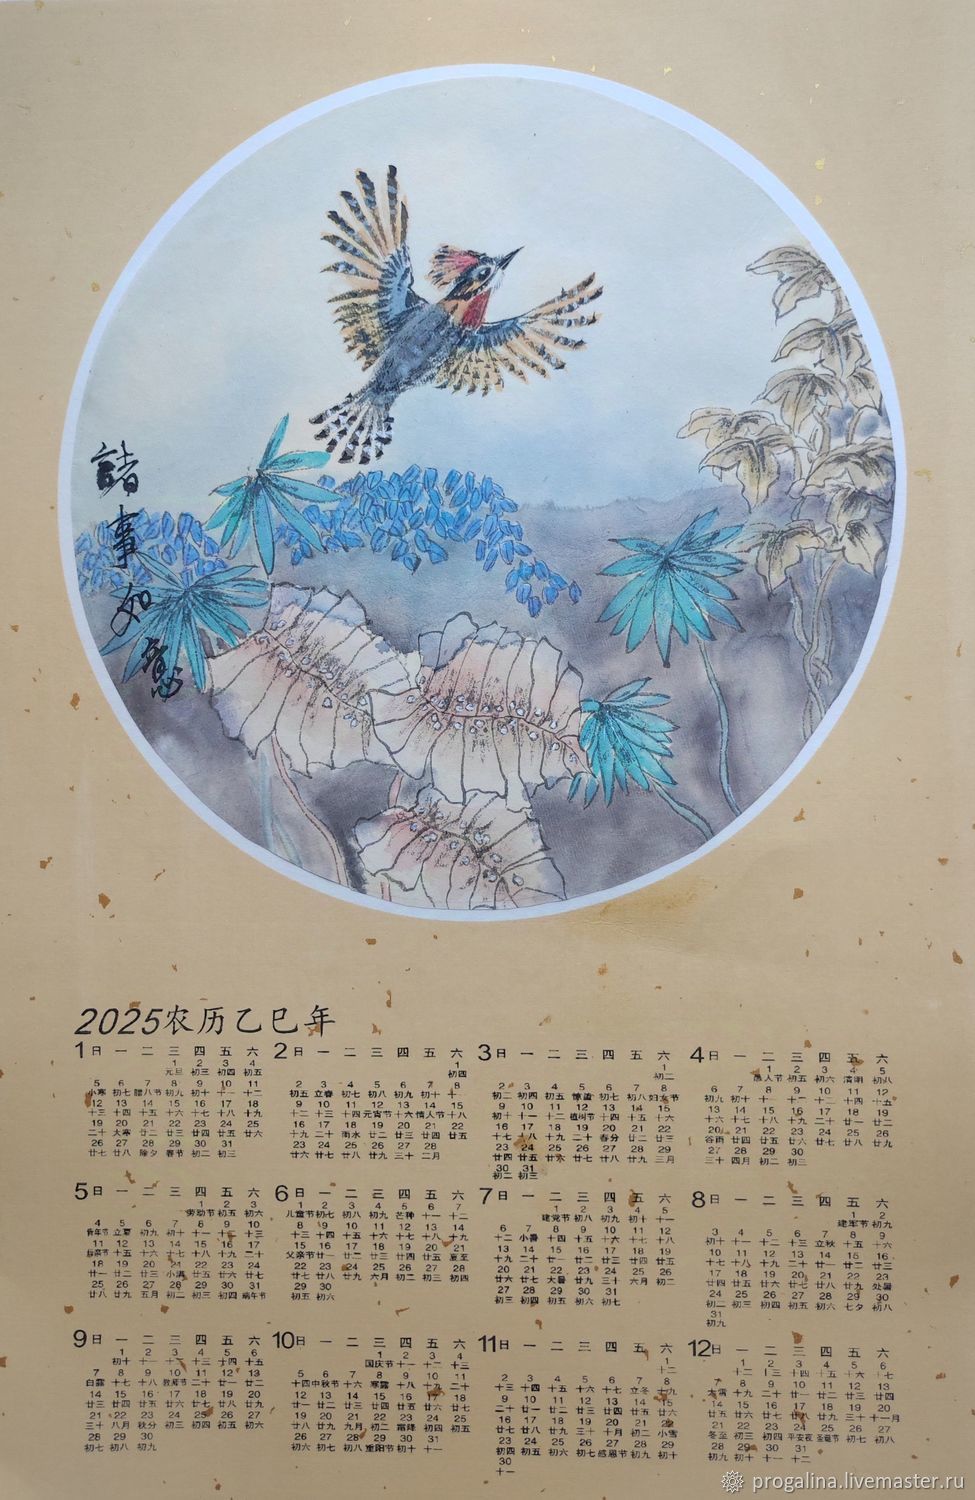 諸事如意
2025农历乙巳年
1 日 一 二 三 四 五 六
1 2 3 4
元旦 初三 初四 初五
5 6 7 8 9 10 11
小寒 初七 腊八节 初九 初十 十一 十二
12 13 14 15 16 17 18
十三 十四 十五 十六 十七 十八 十九
19 20 21 22 23 24 25
二十 大寒 廿二 廿三 廿四 廿五 廿六
26 27 28 29 30 31
廿七 廿八 除夕 春节 初二 初三
2 日 一 二 三 四 五 六
1
初四
2 3 4 5 6 7 8
初五 立春 初七 初八 初九 初十 十一
9 10 11 12 13 14 15
十二 十三 十四 元宵节 十六 情人节 十八
16 17 18 19 20 21 22
十九 二十 雨水 廿二 廿三 廿四 廿五
23 24 25 26 27 28
廿六 廿七 廿八 廿九 三十 二月
3 日 一 二 三 四 五 六
1
初二
2 3 4 5 6 7 8
初四 初五 惊蛰 初七 初八 妇女节
9 10 11 12 13 14 15
初十 十一 十二 植树节 十四 十五 十六
16 17 18 19 20 21 22
十七 十八 十九 二十 春分 廿二 廿三
23 24 25 26 27 28 29
廿四 廿五 廿六 廿七 廿八 廿九 三月
30 31
初二 初三
4 日 一 二 三 四 五 六
1 2 3 4 5
愚人节 初五 初六 清明 初八
6 7 8 9 10 11 12
初九 初十 十一 十二 十三 十四 十五
13 14 15 16 17 18 19
十六 十七 十八 十九 二十 廿一 廿二
20 21 22 23 24 25 26
谷雨 廿四 廿五 廿六 廿七 廿八 廿九
27 28 29 30
三十 四月 初二 初三
5 日 一 二 三 四 五 六
1 2 3
劳动节 初五 初六
4 5 6 7 8 9 10
青年节 立夏 初九 初十 十一 十二 十三
11 12 13 14 15 16 17
母亲节 十五 十六 十七 十八 十九 二十
18 19 20 21 22 23 24
廿一 廿二 廿三 小满 廿五 廿六 廿七
25 26 27 28 29 30 31
廿八 廿九 五月 初二 初三 初四 端午节
6 日 一 二 三 四 五 六
1 2 3 4 5 6 7
儿童节 初七 初八 初九 芒种 十一 十二
8 9 10 11 12 13 14
十三 十四 十五 十六 十七 十八 十九
15 16 17 18 19 20 21
父亲节 廿一 廿二 廿三 廿四 廿五 夏至
22 23 24 25 26 27 28
廿七 廿八 廿九 六月 初二 初三 初四
29 30
初五 初六
7 日 一 二 三 四 五 六
1 2 3 4 5
建党节 初八 初九 初十 十一
6 7 8 9 10 11 12
十二 小暑 十四 十五 十六 十七 十八
13 14 15 16 17 18 19
十九 二十 廿一 廿二 廿三 廿四 廿五
20 21 22 23 24 25 26
廿六 廿七 大暑 廿九 三十 六月 初二
27 28 29 30 31
初三 初四 初五 初六 初七
8 日 一 二 三 四 五 六
1 2
建军节 初九
3 4 5 6 7 8 9
初十 十一 十二 十三 立秋 十五 十六
10 11 12 13 14 15 16
十七 十八 十九 二十 廿一 廿二 廿三
17 18 19 20 21 22 23
廿四 廿五 廿六 廿七 廿八 廿九 处暑
24 25 26 27 28 29 30
初二 初三 初四 初五 初六 七夕 初八
31
初九
9 日 一 二 三 四 五 六
1 2 3 4 5 6
初十 十一 十二 十三 十四 十五
7 8 9 10 11 12 13
白露 十七 十八 教师节 二十 廿一 廿二
14 15 16 17 18 19 20
廿三 廿四 廿五 廿六 廿七 廿八 廿九
21 22 23 24 25 26 27
三十 八月 秋分 初三 初四 初五 初六
28 29 30
初七 初八 初九
10 日 一 二 三 四 五 六
1 2 3 4
国庆节 十一 十二 十三
5 6 7 8 9 10 11
十四 中秋节 十六 寒露 十八 十九 二十
12 13 14 15 16 17 18
廿一 廿二 廿三 廿四 廿五 廿六 廿七
19 20 21 22 23 24 25
廿八 廿九 九月 初二 霜降 初四 初五
26 27 28 29 30 31
初六 初七 初八 重阳节 初十 十一
11 日 一 二 三 四 五 六
1
十二
2 3 4 5 6 7 8
十三 十四 十五 十六 十七 立冬 十九
9 10 11 12 13 14 15
二十 廿一 廿二 廿三 廿四 廿五 廿六
16 17 18 19 20 21 22
廿七 廿八 廿九 三十 十月 初二 小雪
23 24 25 26 27 28 29
初四 初五 初六 初七 感恩节 初九 初十
30
十一
12 日 一 二 三 四 五 六
1 2 3 4 5 6
十二 十三 十四 十五 十六 十七
7 8 9 10 11 12 13
大雪 十九 二十 廿一 廿二 廿三 廿四
14 15 16 17 18 19 20
廿五 廿六 廿七 廿八 廿九 三十 十一月
21 22 23 24 25 26 27
冬至 初三 初四 平安夜 圣诞节 初七 初八
28 29 30 31
初九 初十 十一 十二
progalina.livemaster.ru